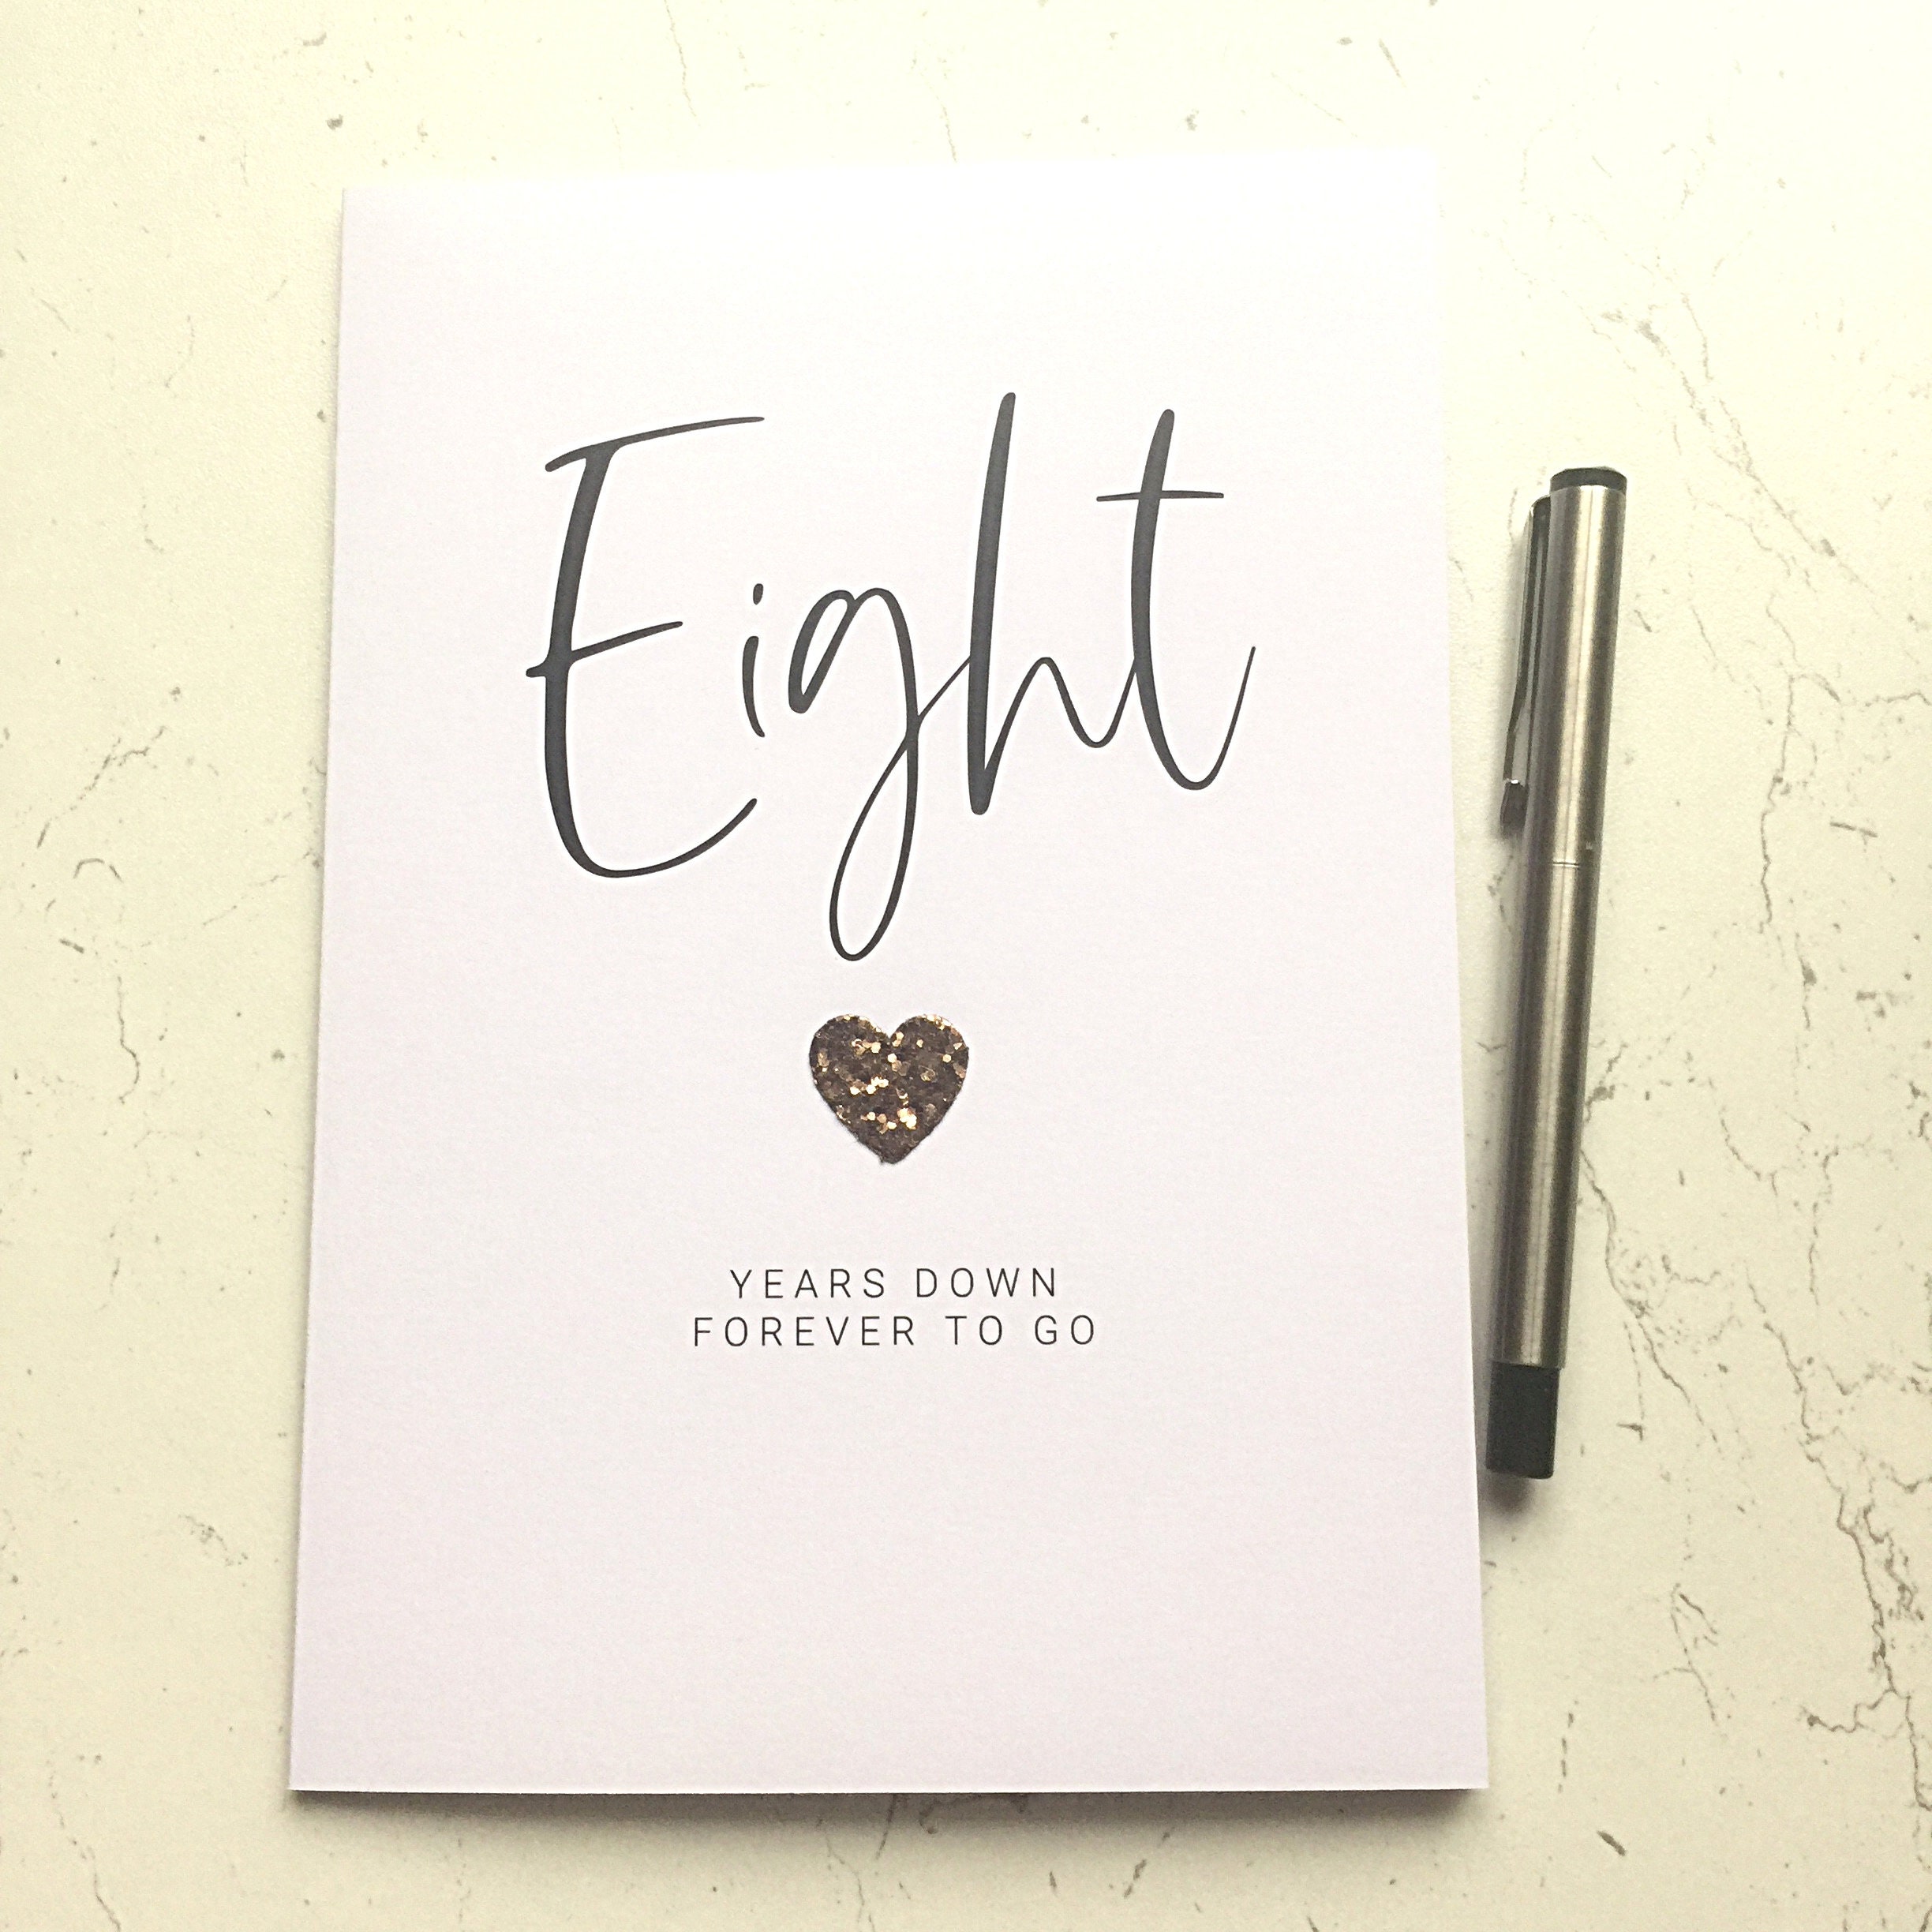 Eight
YEARS DOWN
FOREVER TO GO